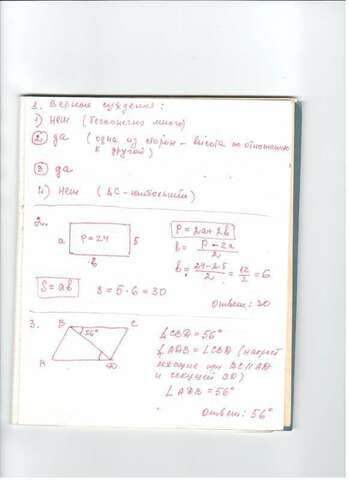 1. Верные суждения:
1) нет (бесконечно много)
2) да (одна из сторон - высота по отношению
к другой)
3) да
4) нет (
2.
a P=24 5
b
P=2a+2b
b= P-2a / 2
b= 24-2·5 / 2 = 12 / 2 = 6
S=ab S=5·6=30
Ответ: 30
3.
B C
56°
∠CBD=56°
∠ADB=∠CBD (накрест
лежащие при BC||AD
и секущей BD)
∠ADB=56°
Ответ: 56°